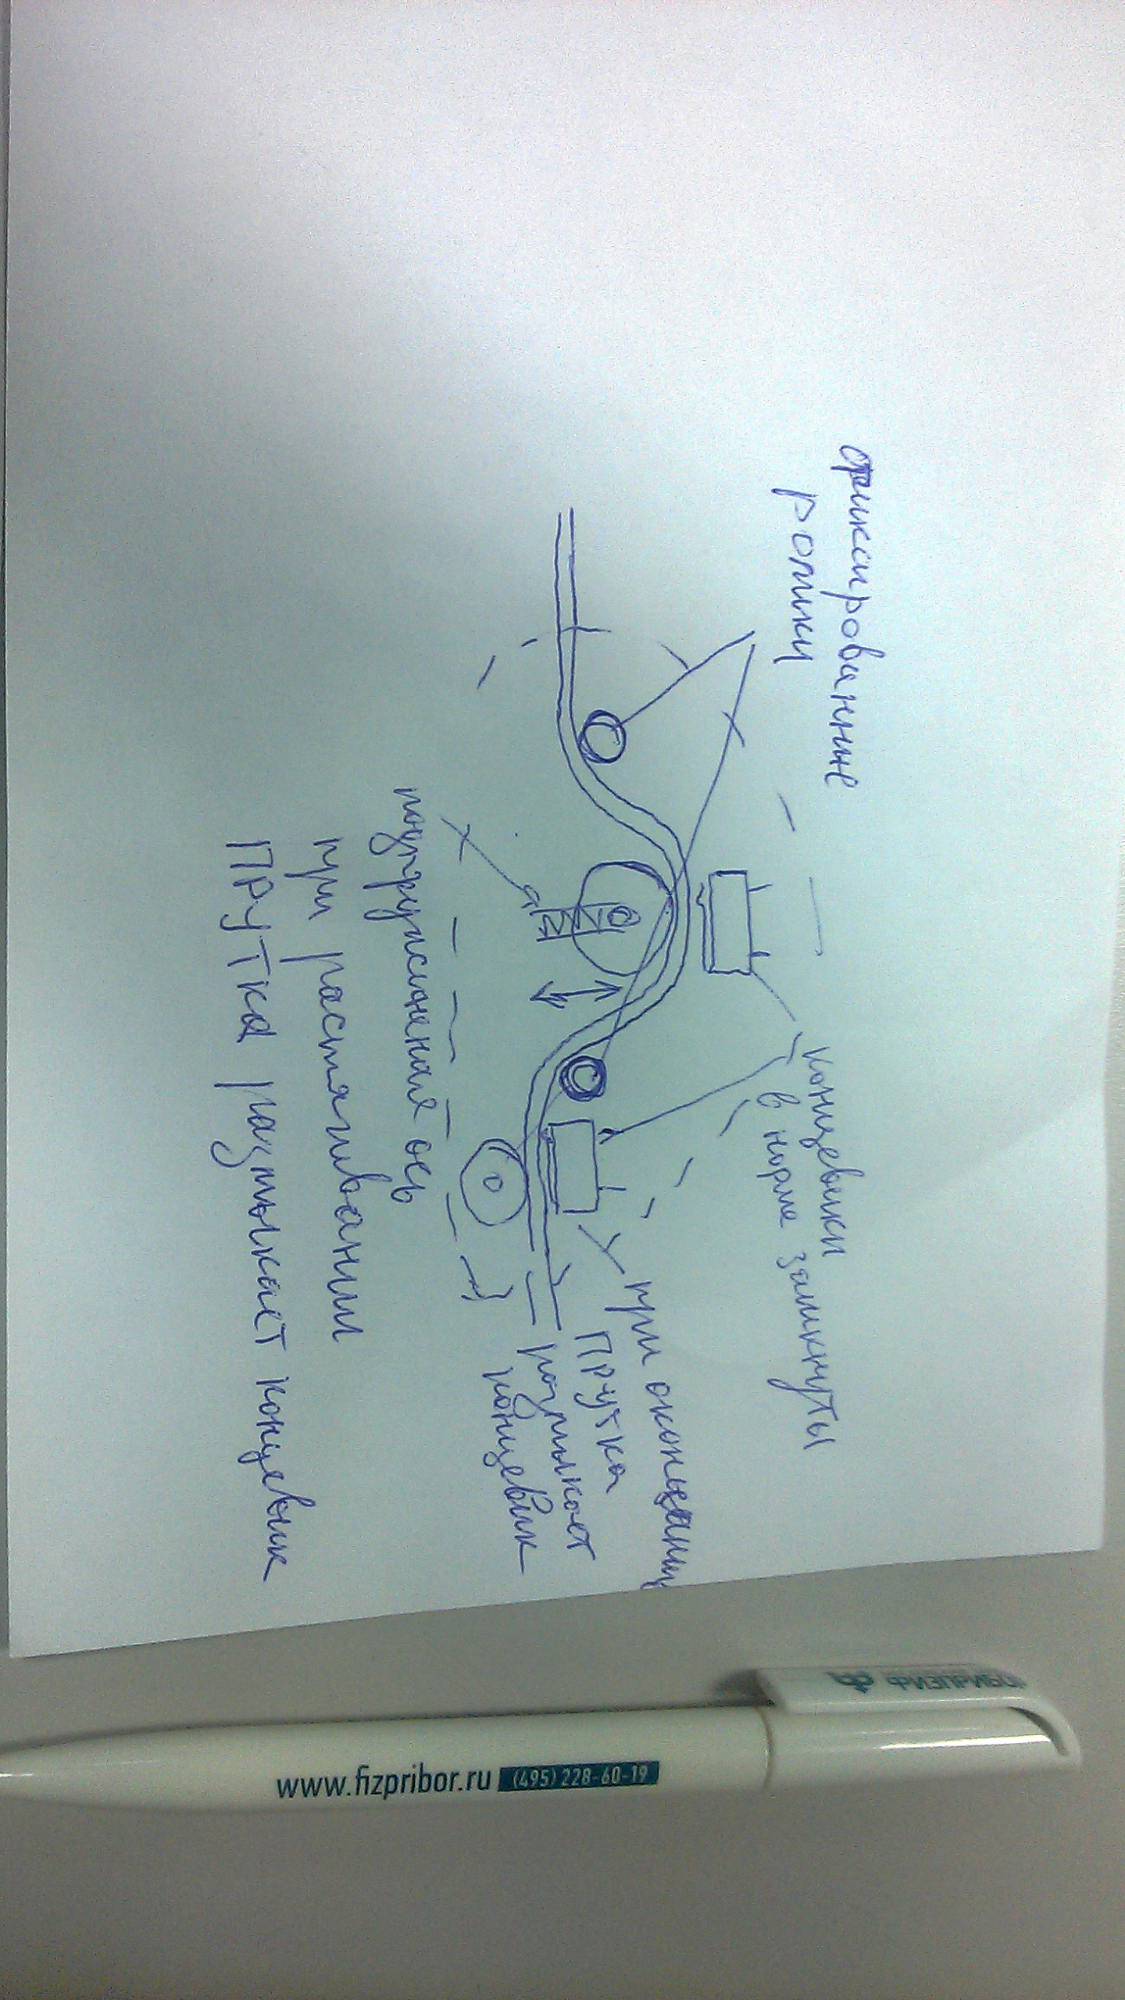 фиксированные
ролики
концевики
в норме замкнуты
при окончании
ПРУТКА
размыкает
концевик
подпружиненая ось
при растягивании
ПРУТКА размыкает концевик
ФИЗПРИБОР
www.fizpribor.ru (495) 228-60-19